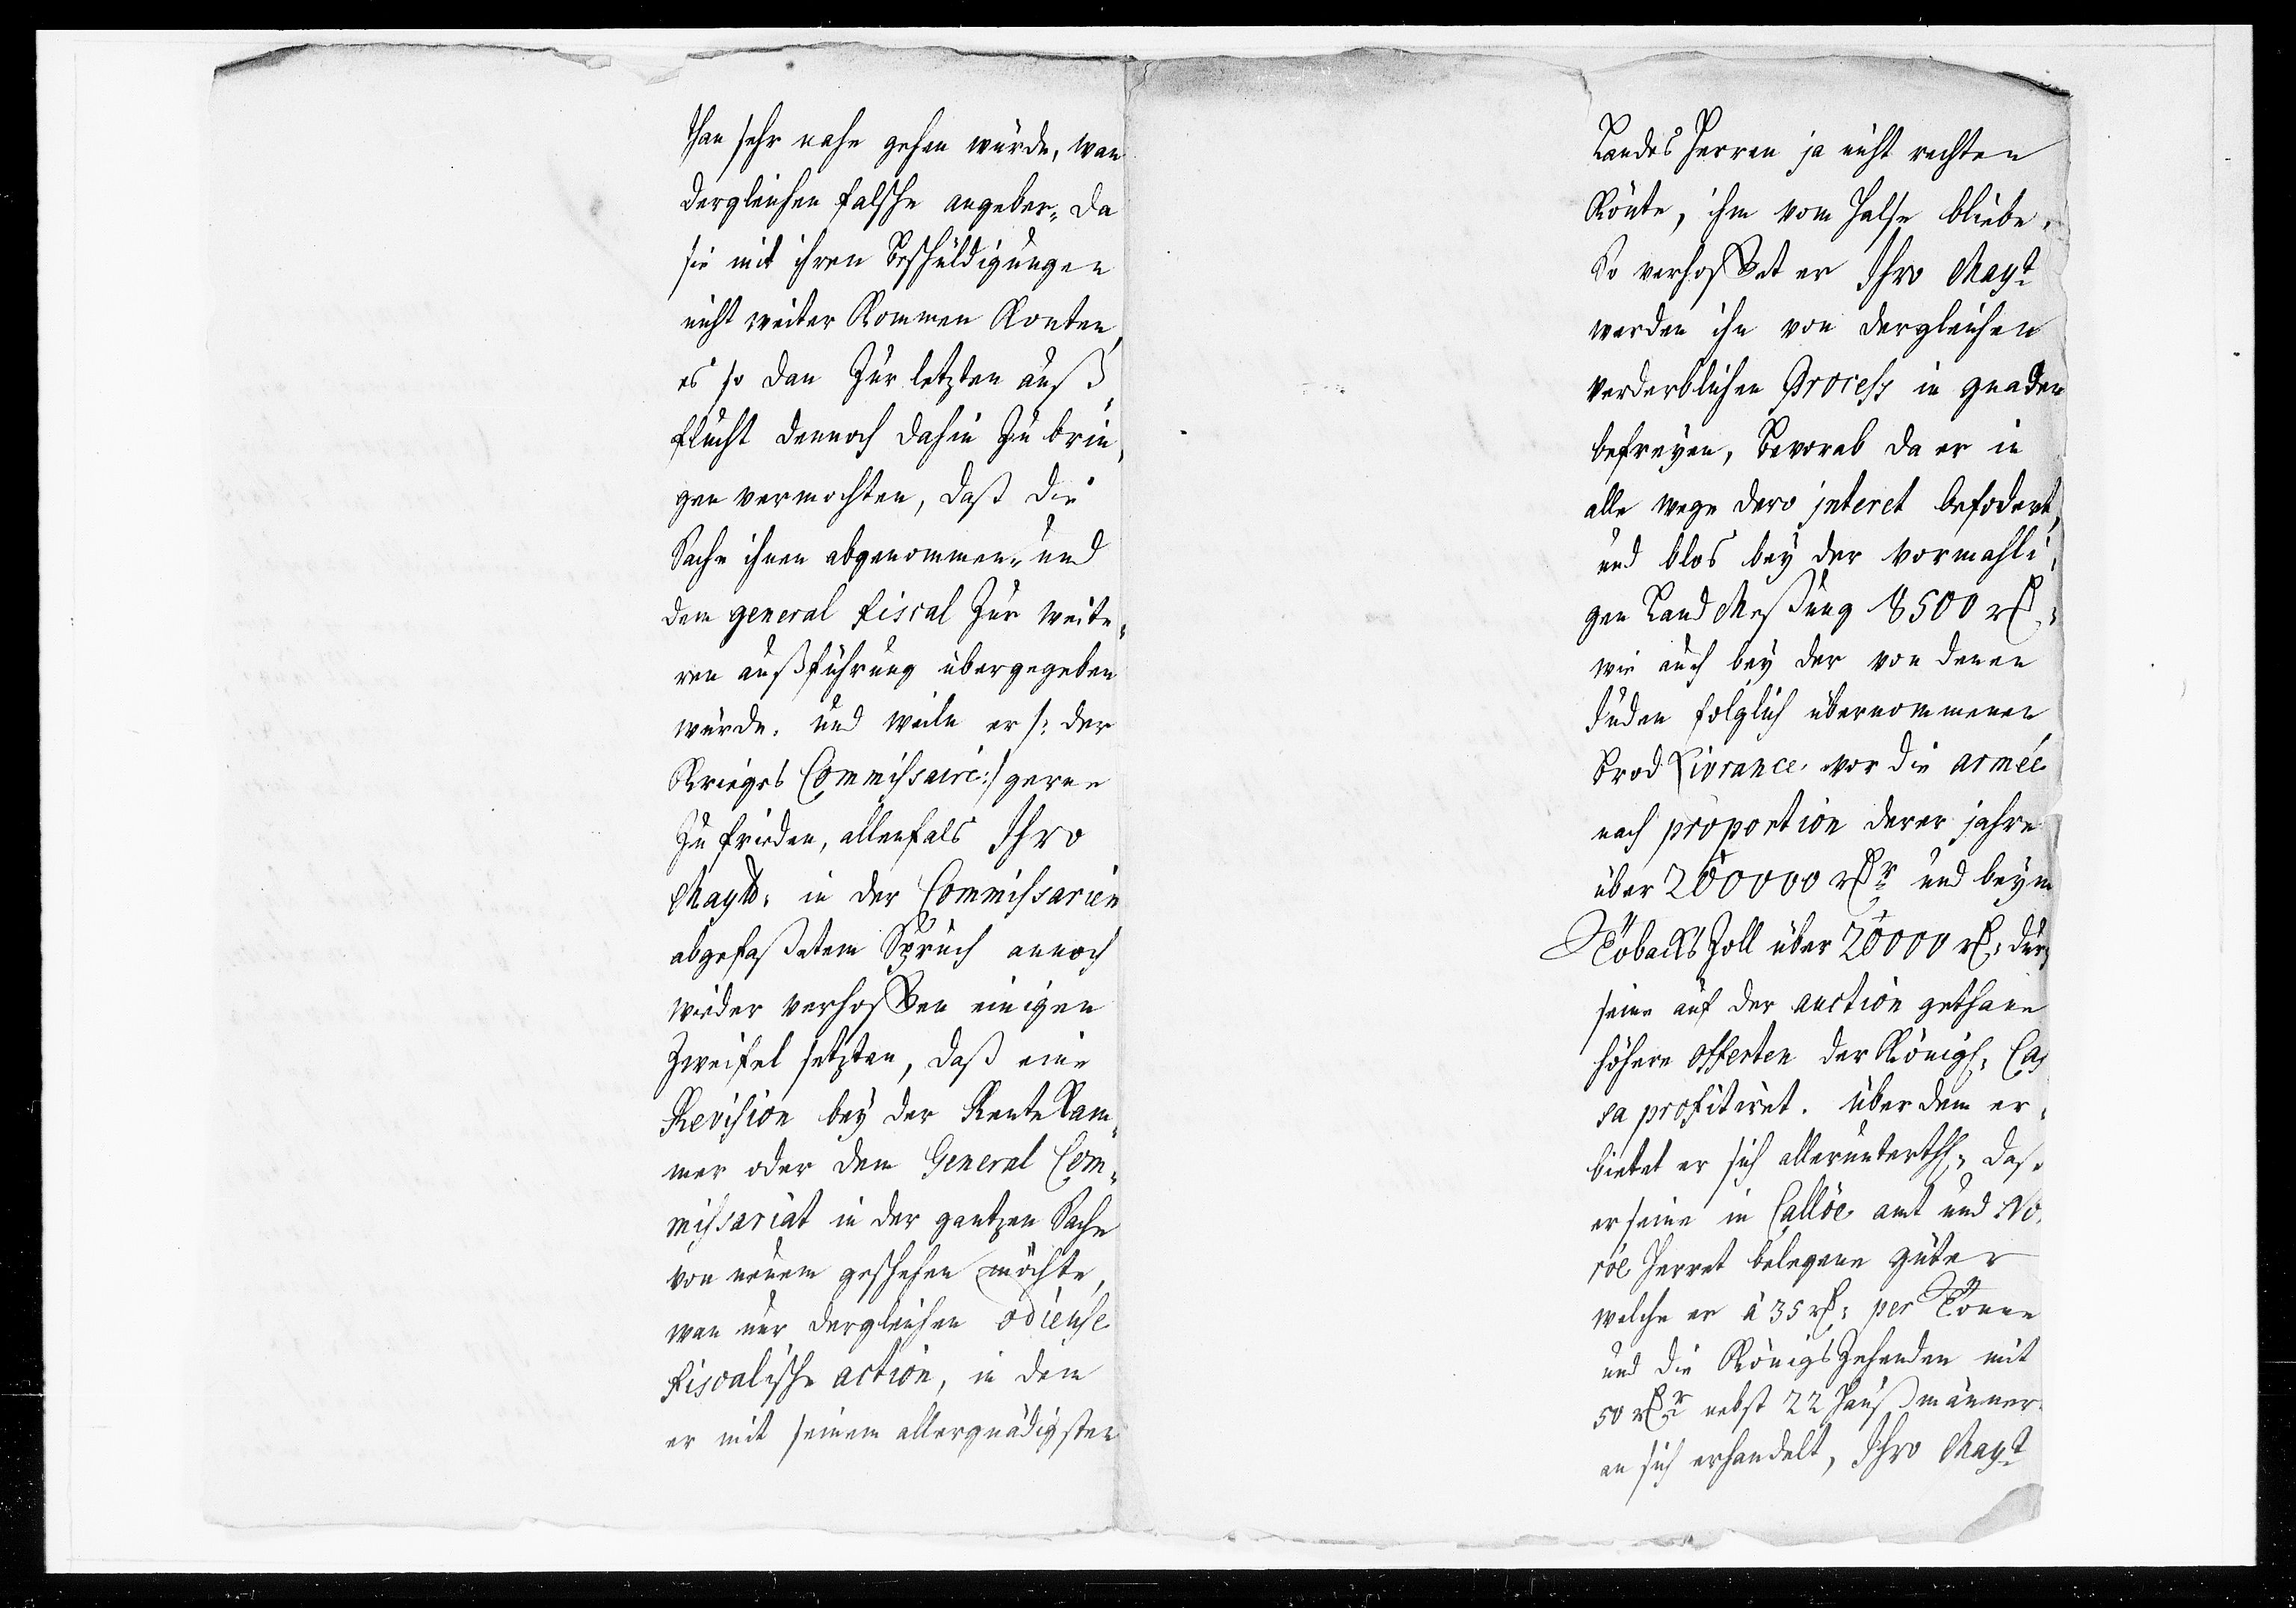 than sehr nahe gehen würde, wan
dergleichen falsche angeber„ da
sie mit ihren Beschuldigungen
nicht weiter kommen konten,
es so dan zur letzten auß„
flucht dennoch dahin zu brin„
gen vermochten, daß die
Sache ihnen abgenommen„ und
dem general fiscal zur weite„
ren außführung übergegeben
würde. und weile er /: der
Kriegs Commissaire :/ gerne
zu frieden, allenfals Ihro
Maytt: in der Commissarien
abgefaßetem Spruch annoch
wieder verhoffen einigen
Zweifel setzten, daß eine
Revision bey der Rente Kam„
mer oder dem General Com„
missariat in der gantzen Sache
von neuem geschehen möchte,
wan nur dergleichen odieuse
fiscalische action, in dem
er mit seinem allergnädigsten
Landes Herren ja nicht rechten
könte, ihm vom Halse bliebe.
So verhoffet er Ihro Mayt
werden ihn von dergleichen
verderblichen Process in gnaden
befreyen, Bevorab da er in
alle wege dero interet befodert,
und blos bey der vormahli„
gen Land Meßung 18500 rd:
wie auch bey der von denen
Juden folglich übernommenen
Brod Livrance vor die armée
nach proportion derer jahre
über 200000 rdr und beym
Tobacks Zoll über 20000 rd: dur„
seine auf der auction gethane
höhere offerten der Königl: Cas
sa profitiret. über dem er„
bietet er sich allerunterth: das
er seine in Callöe amt und No„
röe Herret belegene güter
welche er à 35 rd: per Tonne
und die Königs Zehenden mit
50 rdr nebst 22 Haußmänner
an sich erhandelt, Ihro Mayt